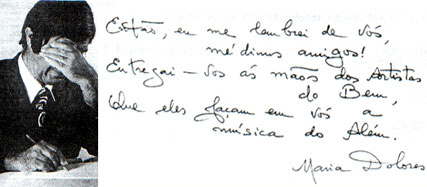 Então, eu me lembrei de vós,
médiuns amigos!
Entregai-vos às mãos dos Artistas
do Bem,
Que eles façam em vós a
música do Além.
Maria Dolores